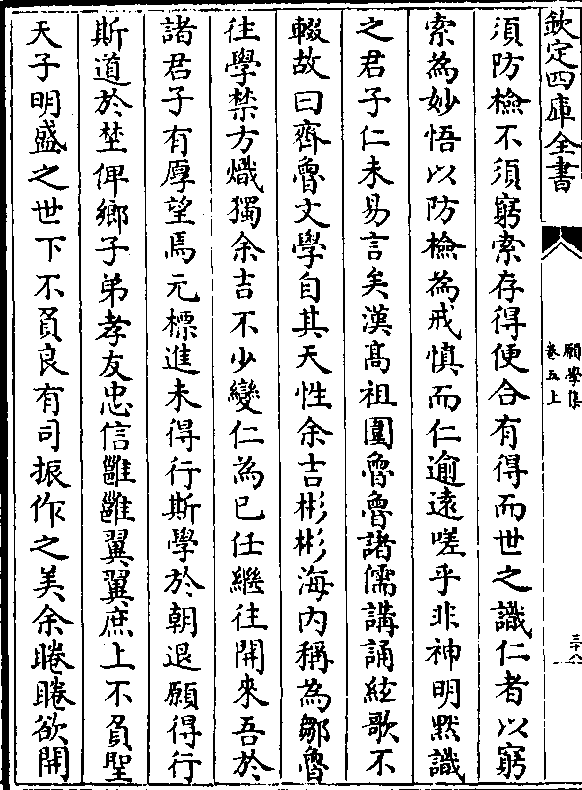 欽定四庫全書
願學集
卷五上
須防檢不須窮索存得便合有得而世之識仁者以窮
索為妙悟以防檢為戒慎而仁逾逺嗟乎非神明黙識
之君子仁未易言矣漢髙祖圍魯魯諸儒講誦絃歌不
輟故曰齊魯文學自其天性余吉彬彬海内稱為鄒魯
往學禁方熾獨余吉不少變仁為已任繼往開來吾於
諸君子有厚望焉元標進未得行斯學於朝退願得行
斯道於埜俾鄉子弟孝友忠信雝雝翼翼庶上不負聖
天子明盛之世下不負良有司振作之美余睠睠欲開